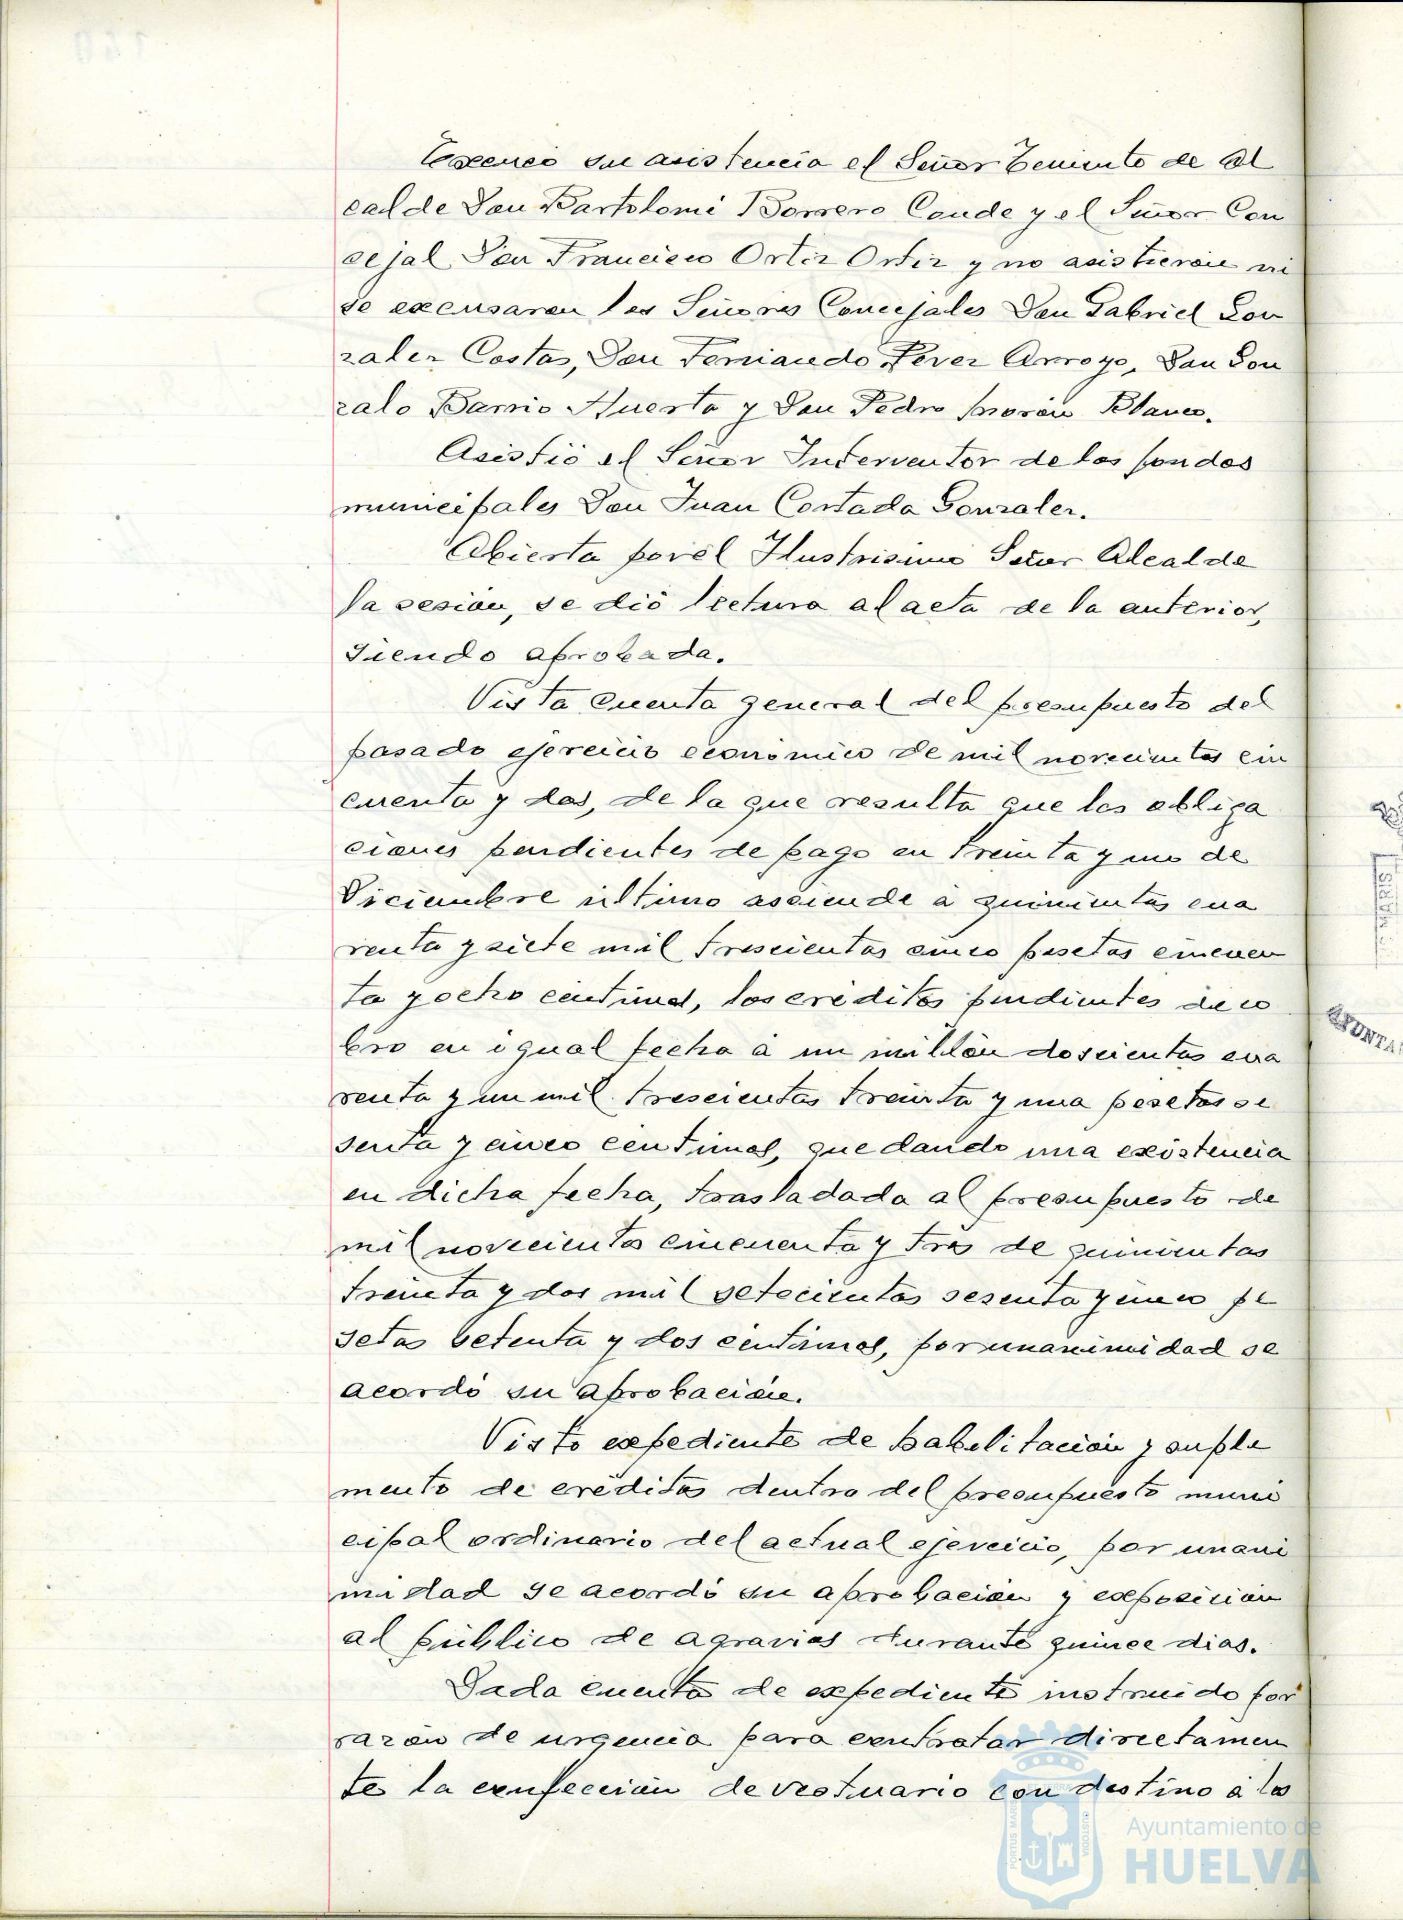 Excusó su asistencia el Señor Teniente de Al
calde Don Bartolomé Borrero Conde y el Señor Con
cejal Don Francisco Ortiz Ortiz y no asistieron ni
se excusaron los Señores Concejales Don Gabriel Gon
zalez Costas, Don Fernando Perez Arroyo, Don Gon
zalo Barrio Huerta y Don Pedro Morón Blanco.
Asistió el Señor Interventor de los fondos
municipales Don Juan Cortada Gonzalez.
Abierta por el Ilustrisimo Señor Alcalde
la sesión, se dió lectura al acta de la anterior,
siendo aprobada.
Vista cuenta general del presupuesto del
pasado ejercicio económico de mil novecientos cin
cuenta y dos, de la que resulta que las obliga
ciones pendientes de pago en treinta y uno de
Diciembre último asciende á quinientas cua
renta y siete mil trescientas cinco pesetas cincuen
ta y ocho centimos, los créditos pendientes de co
bro en igual fecha á un millón doscientas cua
renta y un mil trescientas treinta y una pesetas se
senta y cinco centimos, quedando una existencia
en dicha fecha, trasladada al presupuesto de
mil novecientos cincuenta y tres de quinientas
treinta y dos mil setecientas sesenta y cinco pe
setas setenta y dos centimos, por unanimidad se
acordó su aprobación.
Visto expediente de habilitación y suple
mento de créditos dentro del presupuesto muni
cipal ordinario del actual ejercicio, por unani
midad se acordó su aprobación y exposición
al público de agravios durante quince dias.
Dada cuenta de expediente instruido por
razón de urgencia para contratar directamen
te la confección de vestuario con destino á los
Ayuntamiento de
HUELVA
PORTUS MARIS
CUSTODIA
AYUNTA